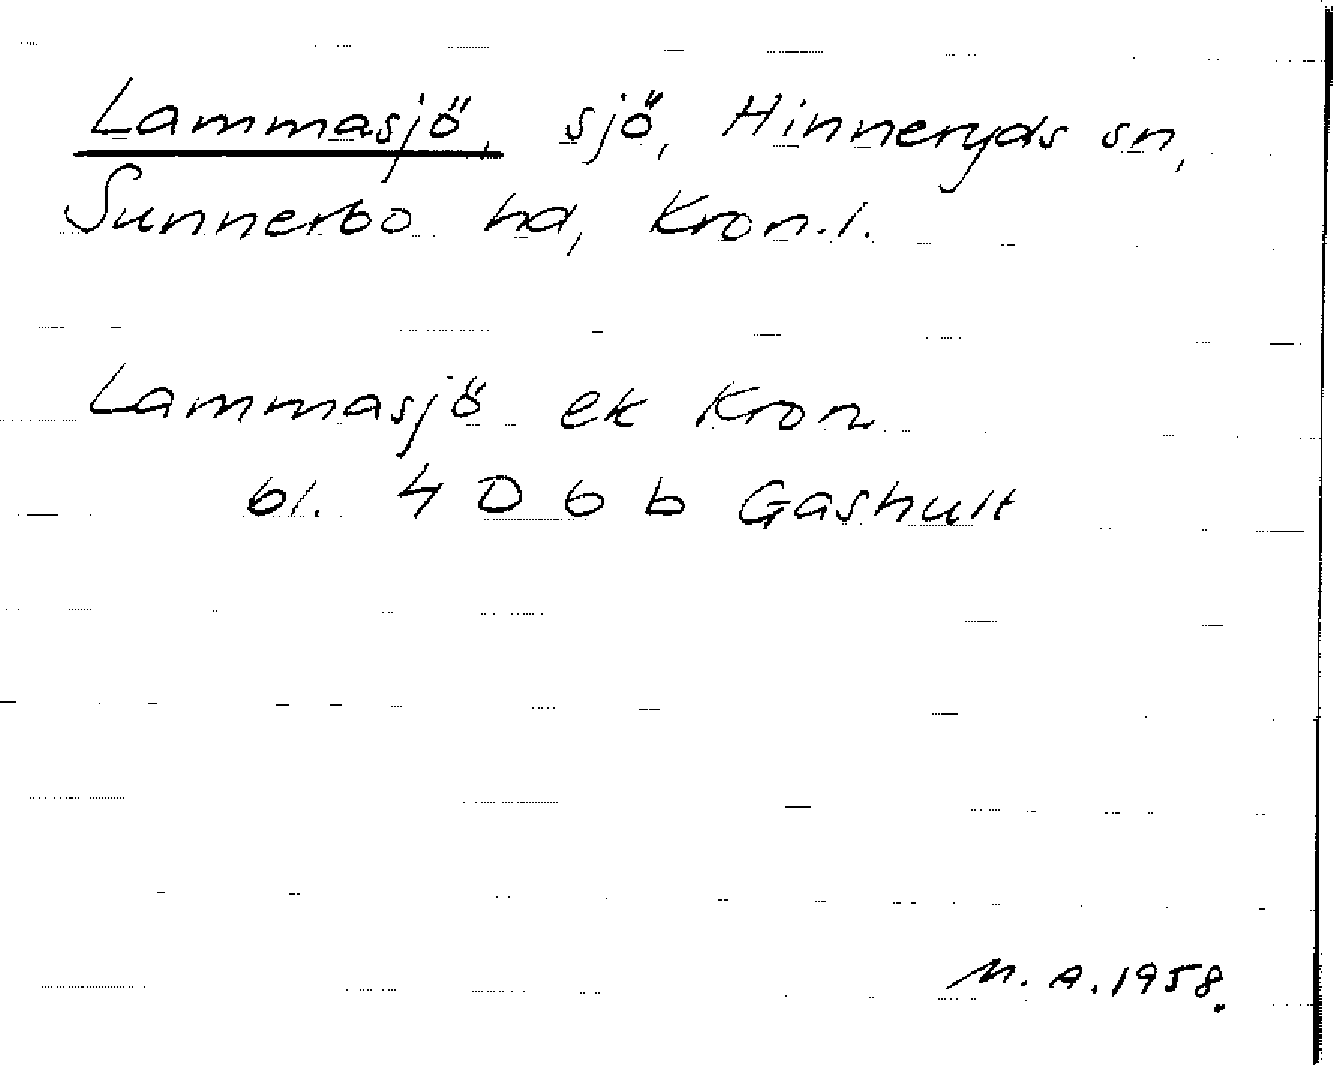 Lammasjö, sjö, Hinneryds sn,
Sunnerbo hd, Kron.l.
Lammasjö ek Kron
bl. 4 D 6 b Gashult
M. A. 1958.